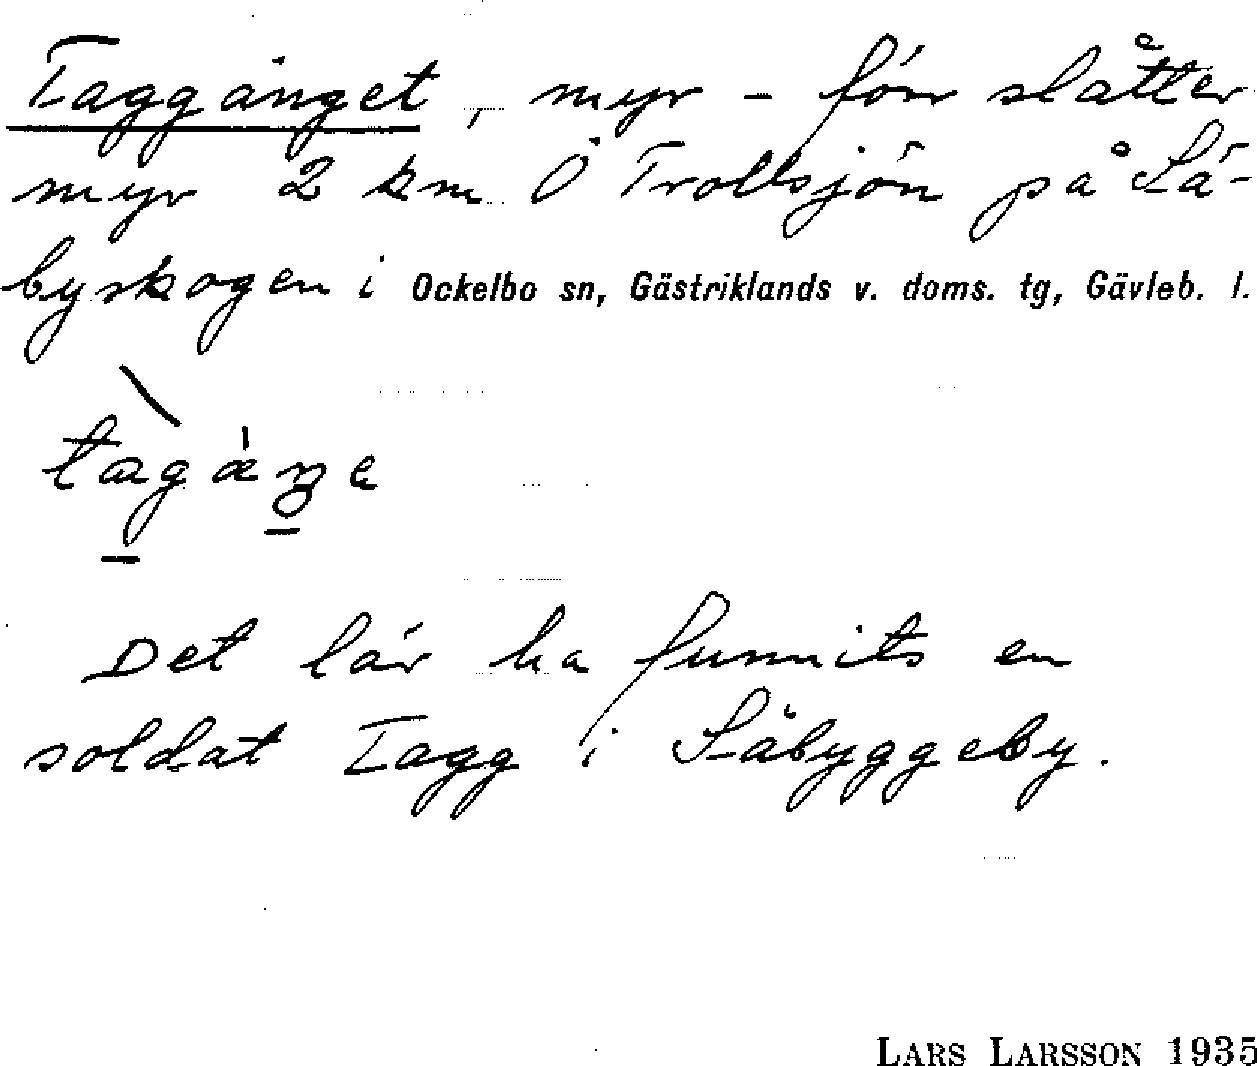 Taggänget, myr - förr slåtter-
myr 2 km Ö Trollsjön på Sä-
byskogen i Ockelbo sn, Gästriklands v. doms. tg, Gävleb. l.
Det lär ha funnits en
soldat Tagg i Säbyggeby.
LARS LARSSON 1935